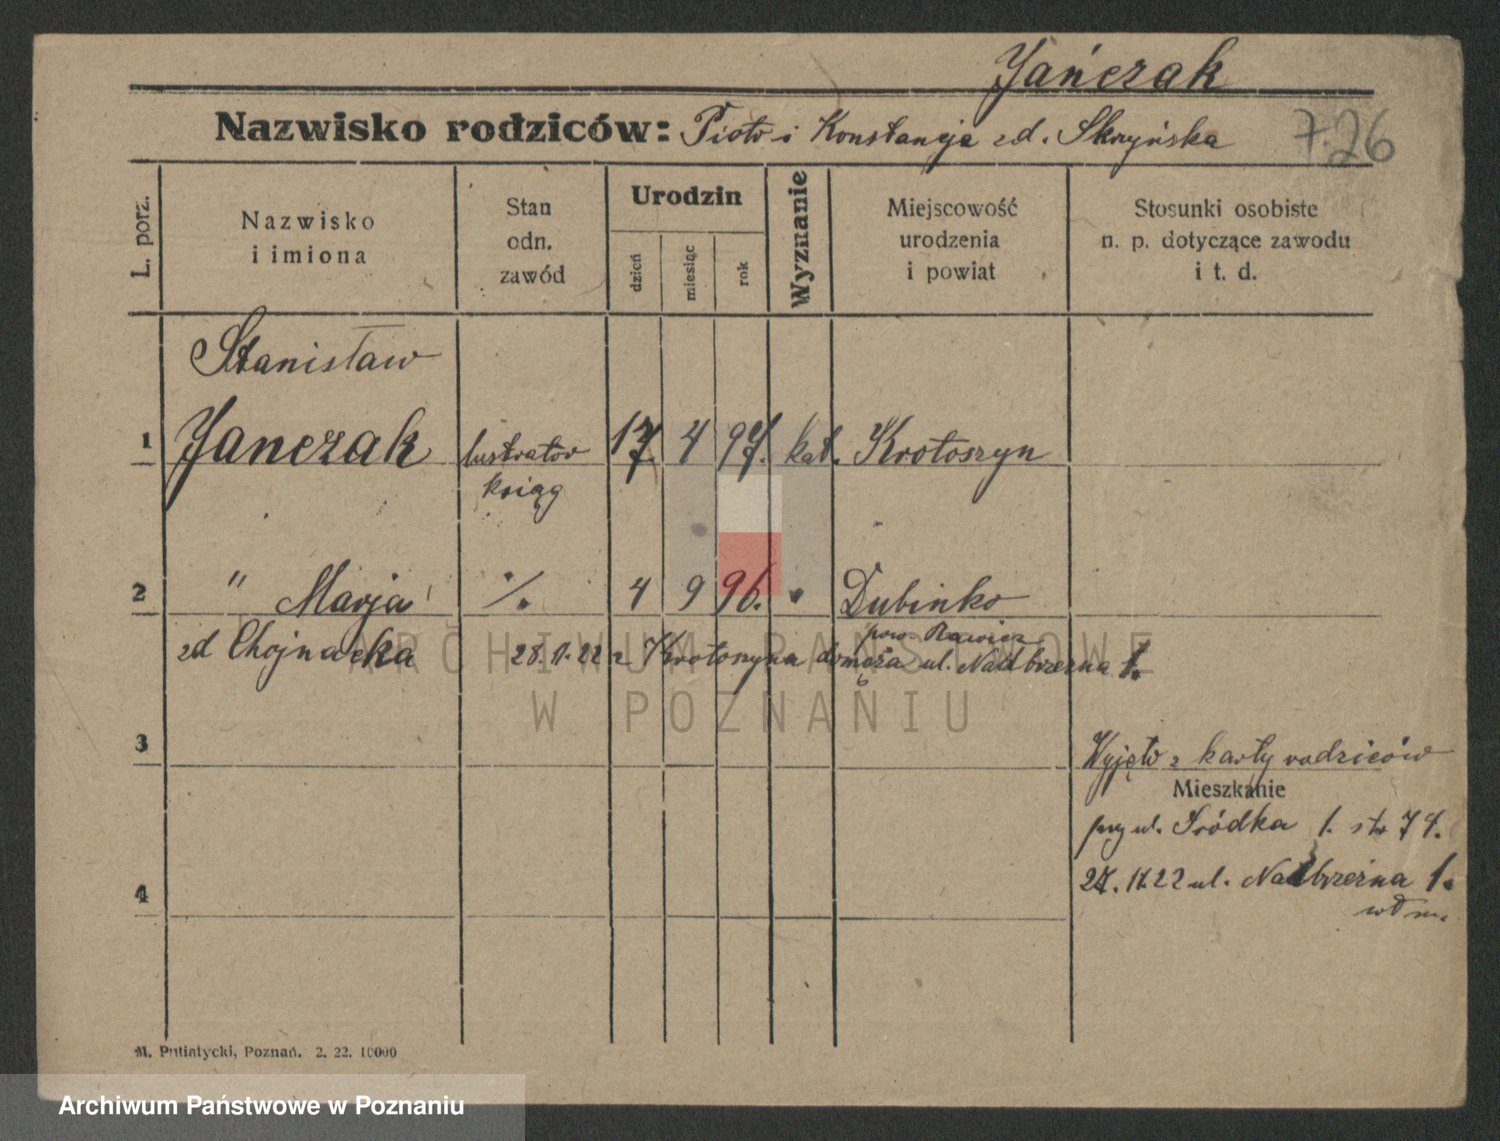 Jańczak
Nazwisko rodziców: Piotr i Konstancja zd. Skrzyńska
7.26
L. porz.
Nazwisko
i imiona
Stan
odn.
zawód
Urodzin
dzień
miesiąc
rok
Wyznanie
Miejscowość
urodzenia
i powiat
Stosunki osobiste
n. p. dotyczące zawodu
i t. d.
Stanisław
1 Janczak lustrator 17. 4 97. kat. Krotoszyn
ksiąg
2 " Marja ·/. 4 9 96. " Dubinko
pow. Rawicz
zd Chojnacka 28.11.22 z Krotoszyna do męża ul. Nadbrzeżna 1.
ARCHIWUM PAŃSTWOWE
W POZNANIU
3
Wyjęto z karty rodziców
Mieszkanie
przy ul. Śródka 1. str 74.
4 27.11.22 ul. Nadbrzeżna 1.
wł m.
M. Putiatycki, Poznań. 2. 22. 10000
Archiwum Państwowe w Poznaniu